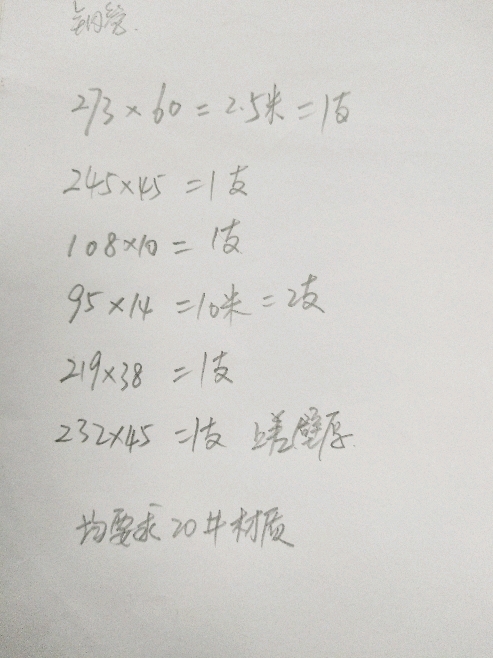 钢管
273×60=2.5米=1支
245×45=1支
108×10=1支
95×14=10米=2支
219×38=1支
232×45=1支 上差壁厚.
均要求20井材质